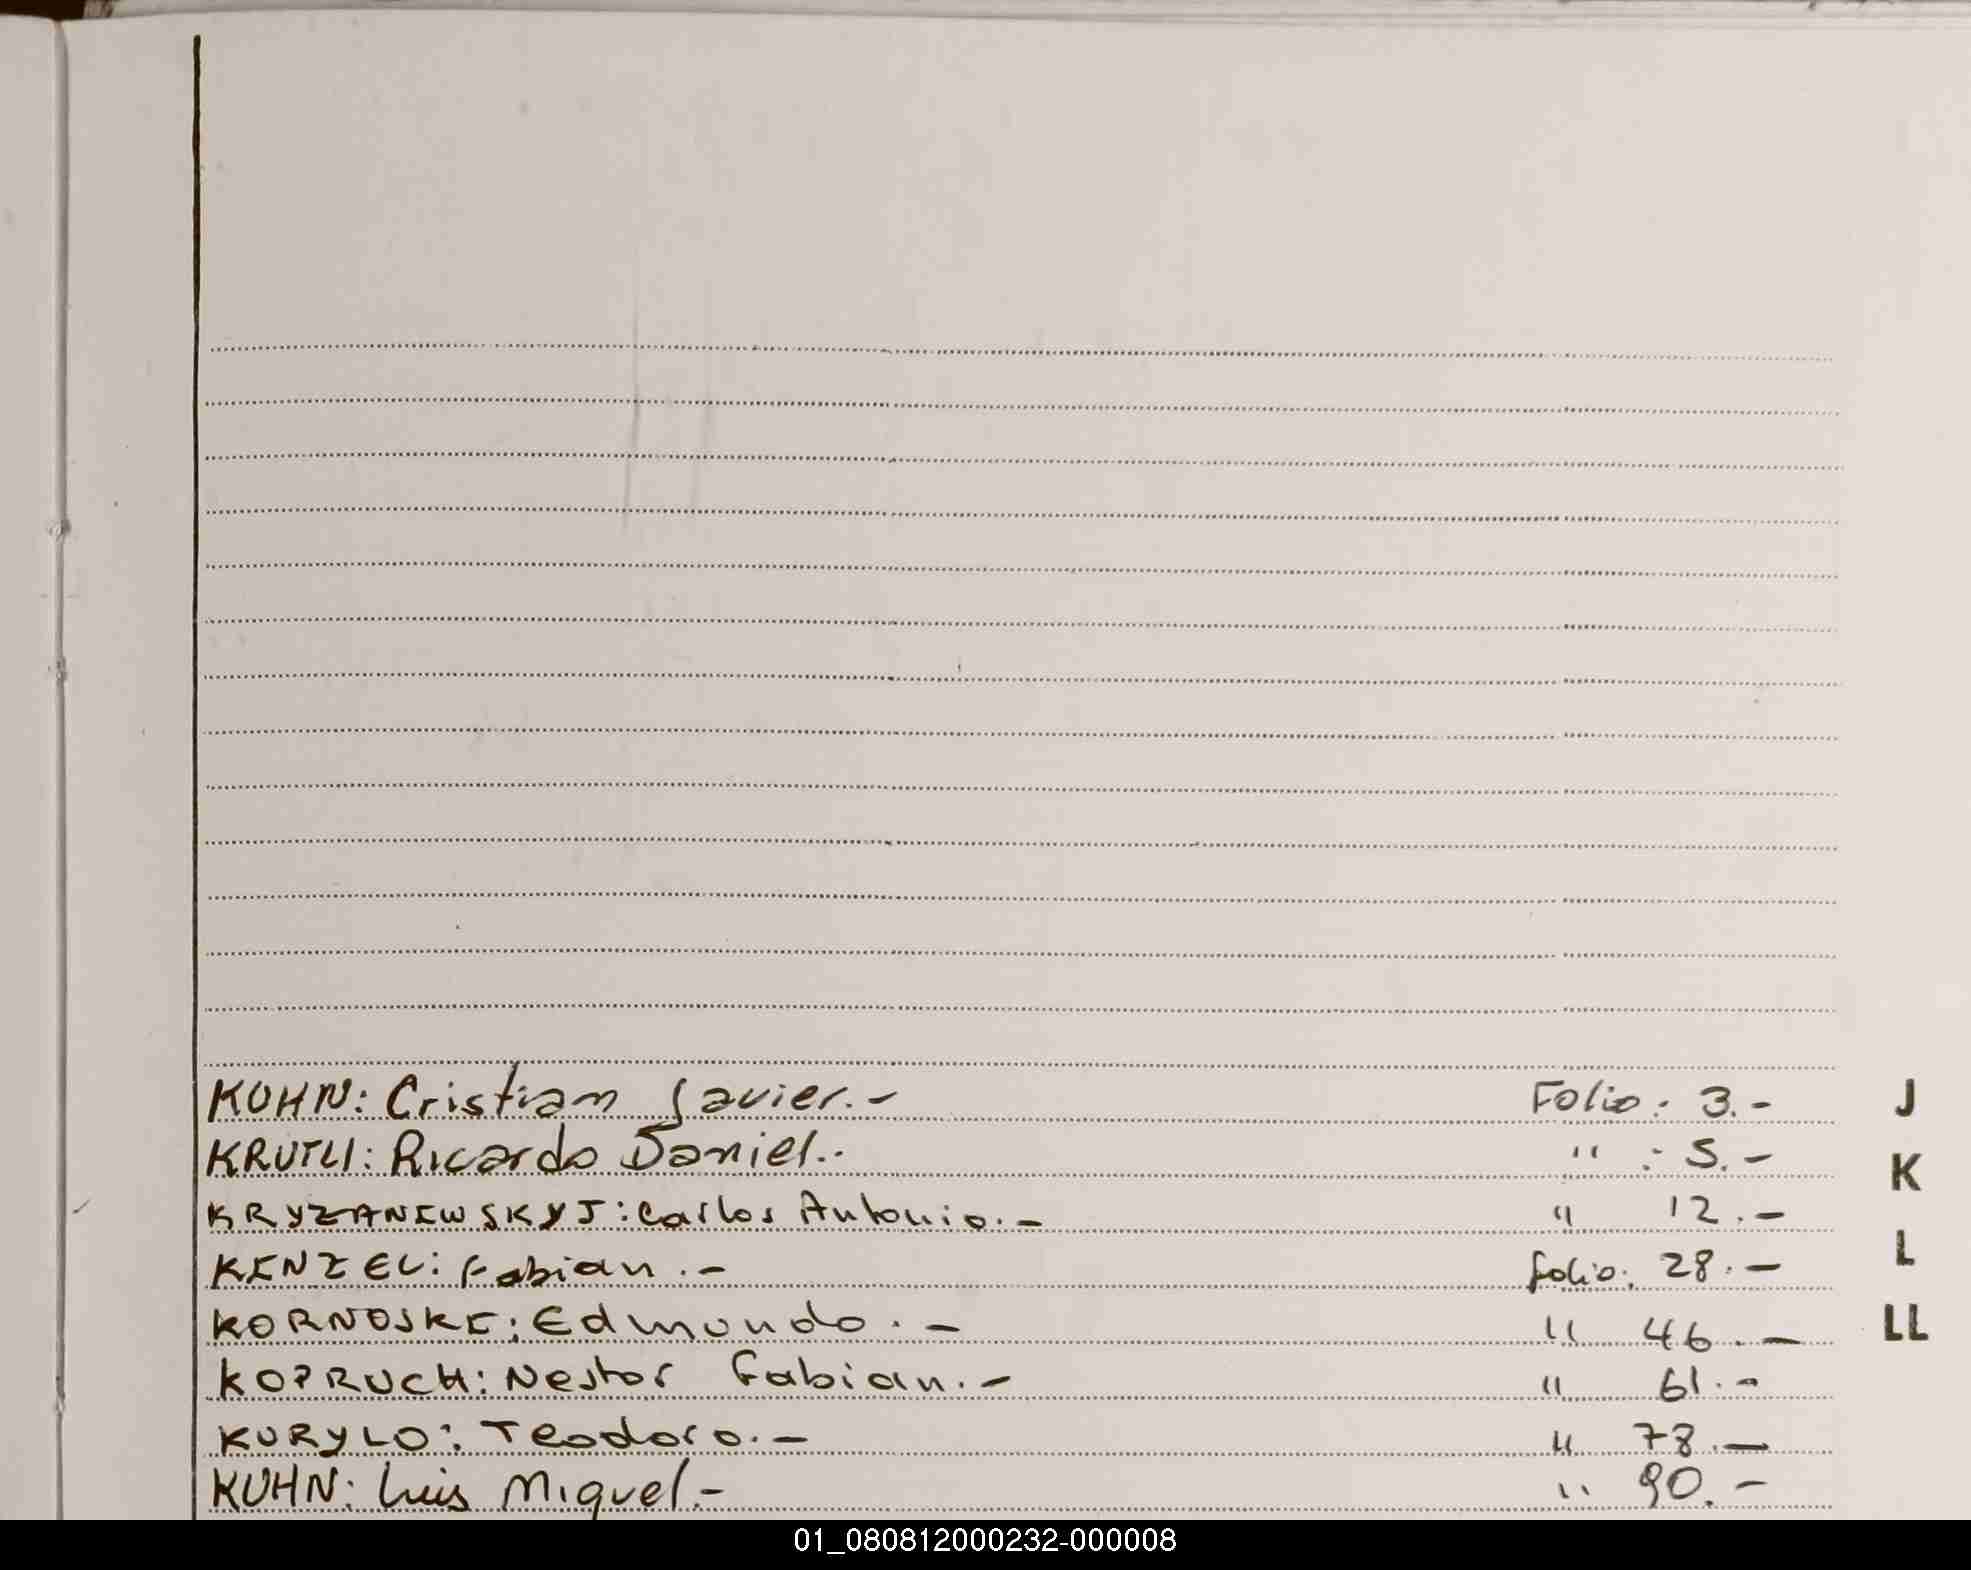 KUHN: Cristian Javier.- Folio: 3.-
J
KRUTLI: Ricardo Daniel.. " : 5.-
K
KRYZANEWSKYJ: Carlos Antonio.- " 12.-
KINZEL: Fabian.- folio: 28.-
L
KORNOSKI: Edmundo.- " 46.-
LL
KOPRUCH: Nestor Fabian.- " 61.-
KURYLO: Teodoro.- " 78.-
KUHN: Luis Miguel.- " 90.-
01_080812000232-000008